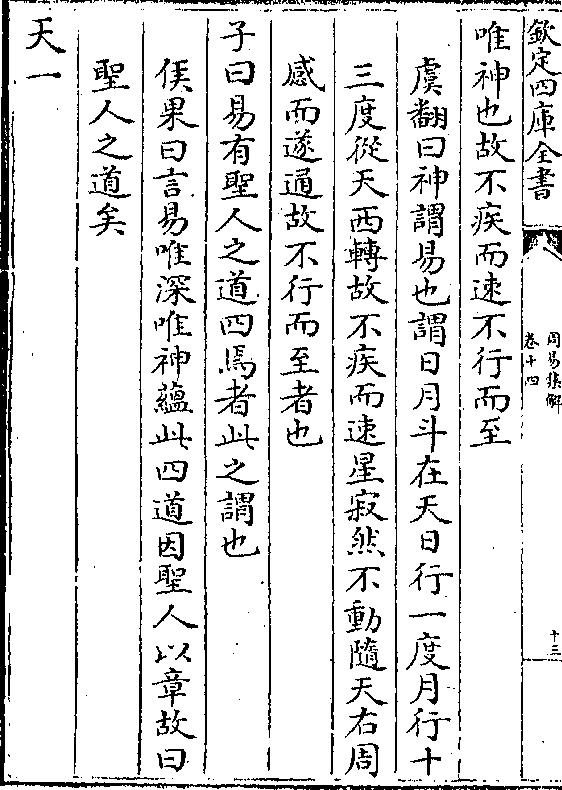 欽定四庫全書
周易集解
卷十四
十三
唯神也故不疾而速不行而至
虞翻曰神謂易也謂日月斗在天日行一度月行十
三度從天西轉故不疾而速星寂然不動隨天右周
感而遂通故不行而至者也
子曰易有聖人之道四焉者此之謂也
侯果曰言易唯深唯神蘊此四道因聖人以章故曰
聖人之道矣
天一